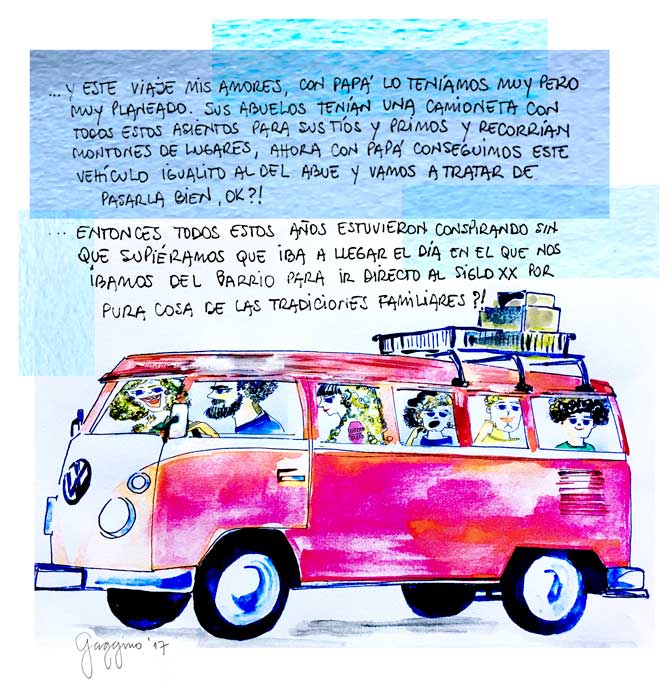 ...Y ESTE VIAJE MIS AMORES, CON PAPÁ LO TENÍAMOS MUY PERO
MUY PLANEADO. SUS ABUELOS TENÍAN UNA CAMIONETA CON
TODOS ESTOS ASIENTOS PARA SUS TÍOS Y PRIMOS Y RECORRÍAN
MONTONES DE LUGARES, AHORA CON PAPÁ CONSEGUIMOS ESTE
VEHÍCULO IGUALITO AL DEL ABUE Y VAMOS A TRATAR DE
PASARLA BIEN, OK?!
... ENTONCES TODOS ESTOS AÑOS ESTUVIERON CONSPIRANDO SIN
QUE SUPIÉRAMOS QUE IBA A LLEGAR EL DÍA EN EL QUE NOS
ÍBAMOS DEL BARRIO PARA IR DIRECTO AL SIGLO XX POR
PURA COSA DE LAS TRADICIONES FAMILIARES?!
VW
Gaggino '17